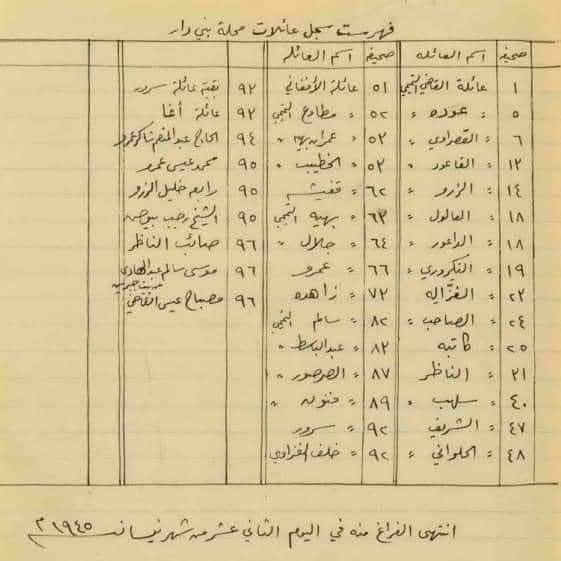 فهرست سجل عائلات محلة بني دار
صحيفة اسم العائلة صحيفة اسم العائلة
١ عائلة القاضي التميمي ٥١ عائلة الأفغاني ٩٢ بقية عائلة سرور
٥ " عوده " ٥٢ " مطاوع التميمي ٩٢ عائلة أغا
٦ " القصراوي " ٥٣ " عمران بيه " ٩٤ الحاج عبد المنعم شاكر عمرو
١٢ " القاعود " ٥٣ " الخطيب " ٩٥ محمد عيسى عمرو
١٤ " الزرو " ٦٢ " قفيشه ٩٥ رابعه خليل الزرو
١٨ " العالول " ٦٣ " بهيه التميمي ٩٥ الشيخ رجب بيوض
١٨ " الداعور " ٦٤ " جلال " ٩٦ صائب الناظر
١٩ " التكروري " ٦٦ " عمرو ٩٦ موسى سالم عبد الهادي
من بيت جبرين
٢٣ " الغزاله " ٧٣ " زاهده ٩٦ مصباح عيسى القاضي
٢٤ " الصاحب " ٨٢ " سالم التميمي
٢٥ " كاتبه ٨٣ " عبد الباسط "
٣١ " الناظر ٨٧ " الصرصور "
٤٠ " سلهب " ٨٩ " "
٤٧ " الشريف ٩٢ " سرور
٤٨ " الحلواني " ٩٢ " خلف الغزاوي
انتهى الفراغ منه في اليوم الثاني عشر من شهر نيسان سنة ١٩٤٥ م